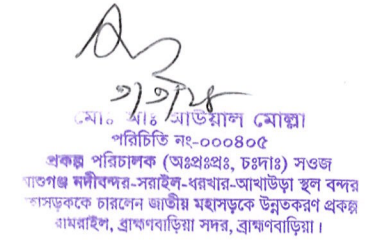 মোঃ আঃ আউয়াল মোল্লা
পরিচিতি নং-০০০৪০৫
প্রকল্প পরিচালক (অঃপ্রঃপ্রঃ, চঃদাঃ) সওজ
আশুগঞ্জ নদীবন্দর-সরাইল-ধরখার-আখাউড়া স্থল বন্দর
মহাসড়ককে চারলেন জাতীয় মহাসড়কে উন্নতকরণ প্রকল্প
ঘামরাইল, ব্রাহ্মণবাড়িয়া সদর, ব্রাহ্মণবাড়িয়া।